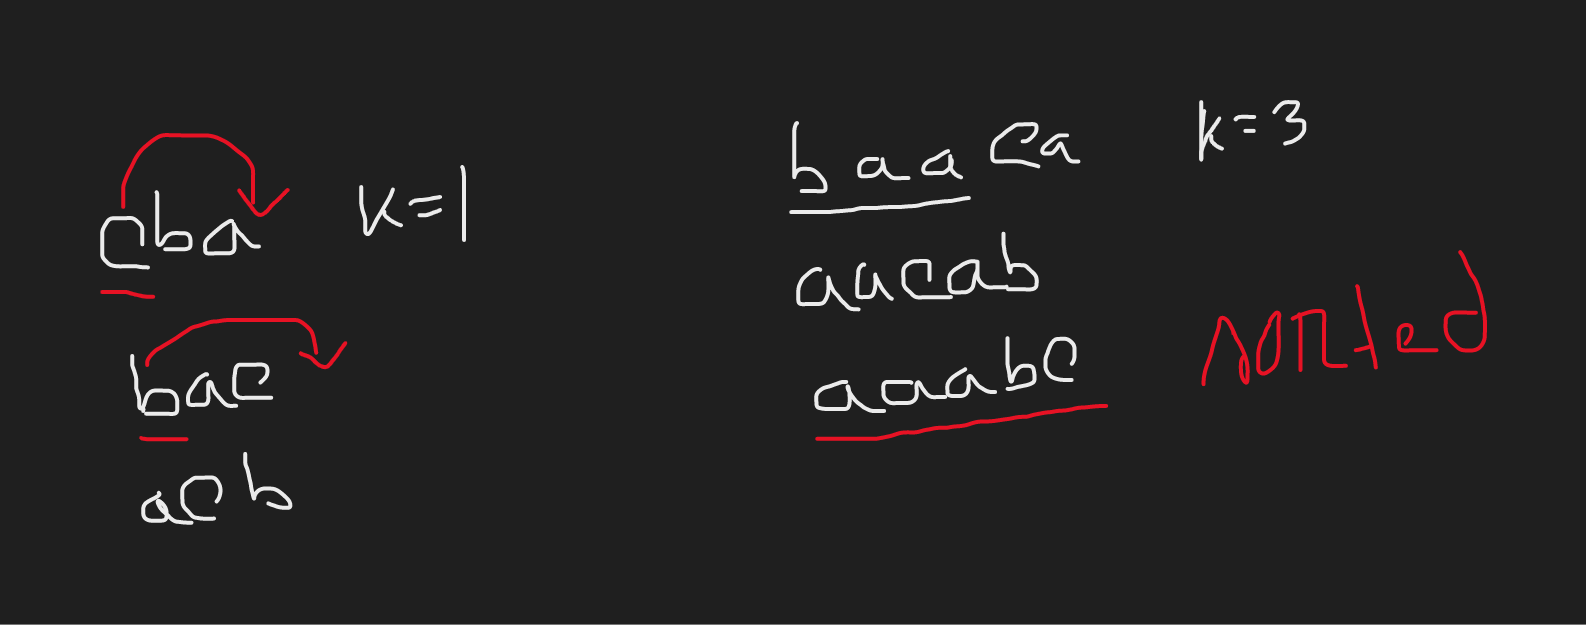 cba k=1
bac
acb
baaca k=3
aacab
aaabc sorted